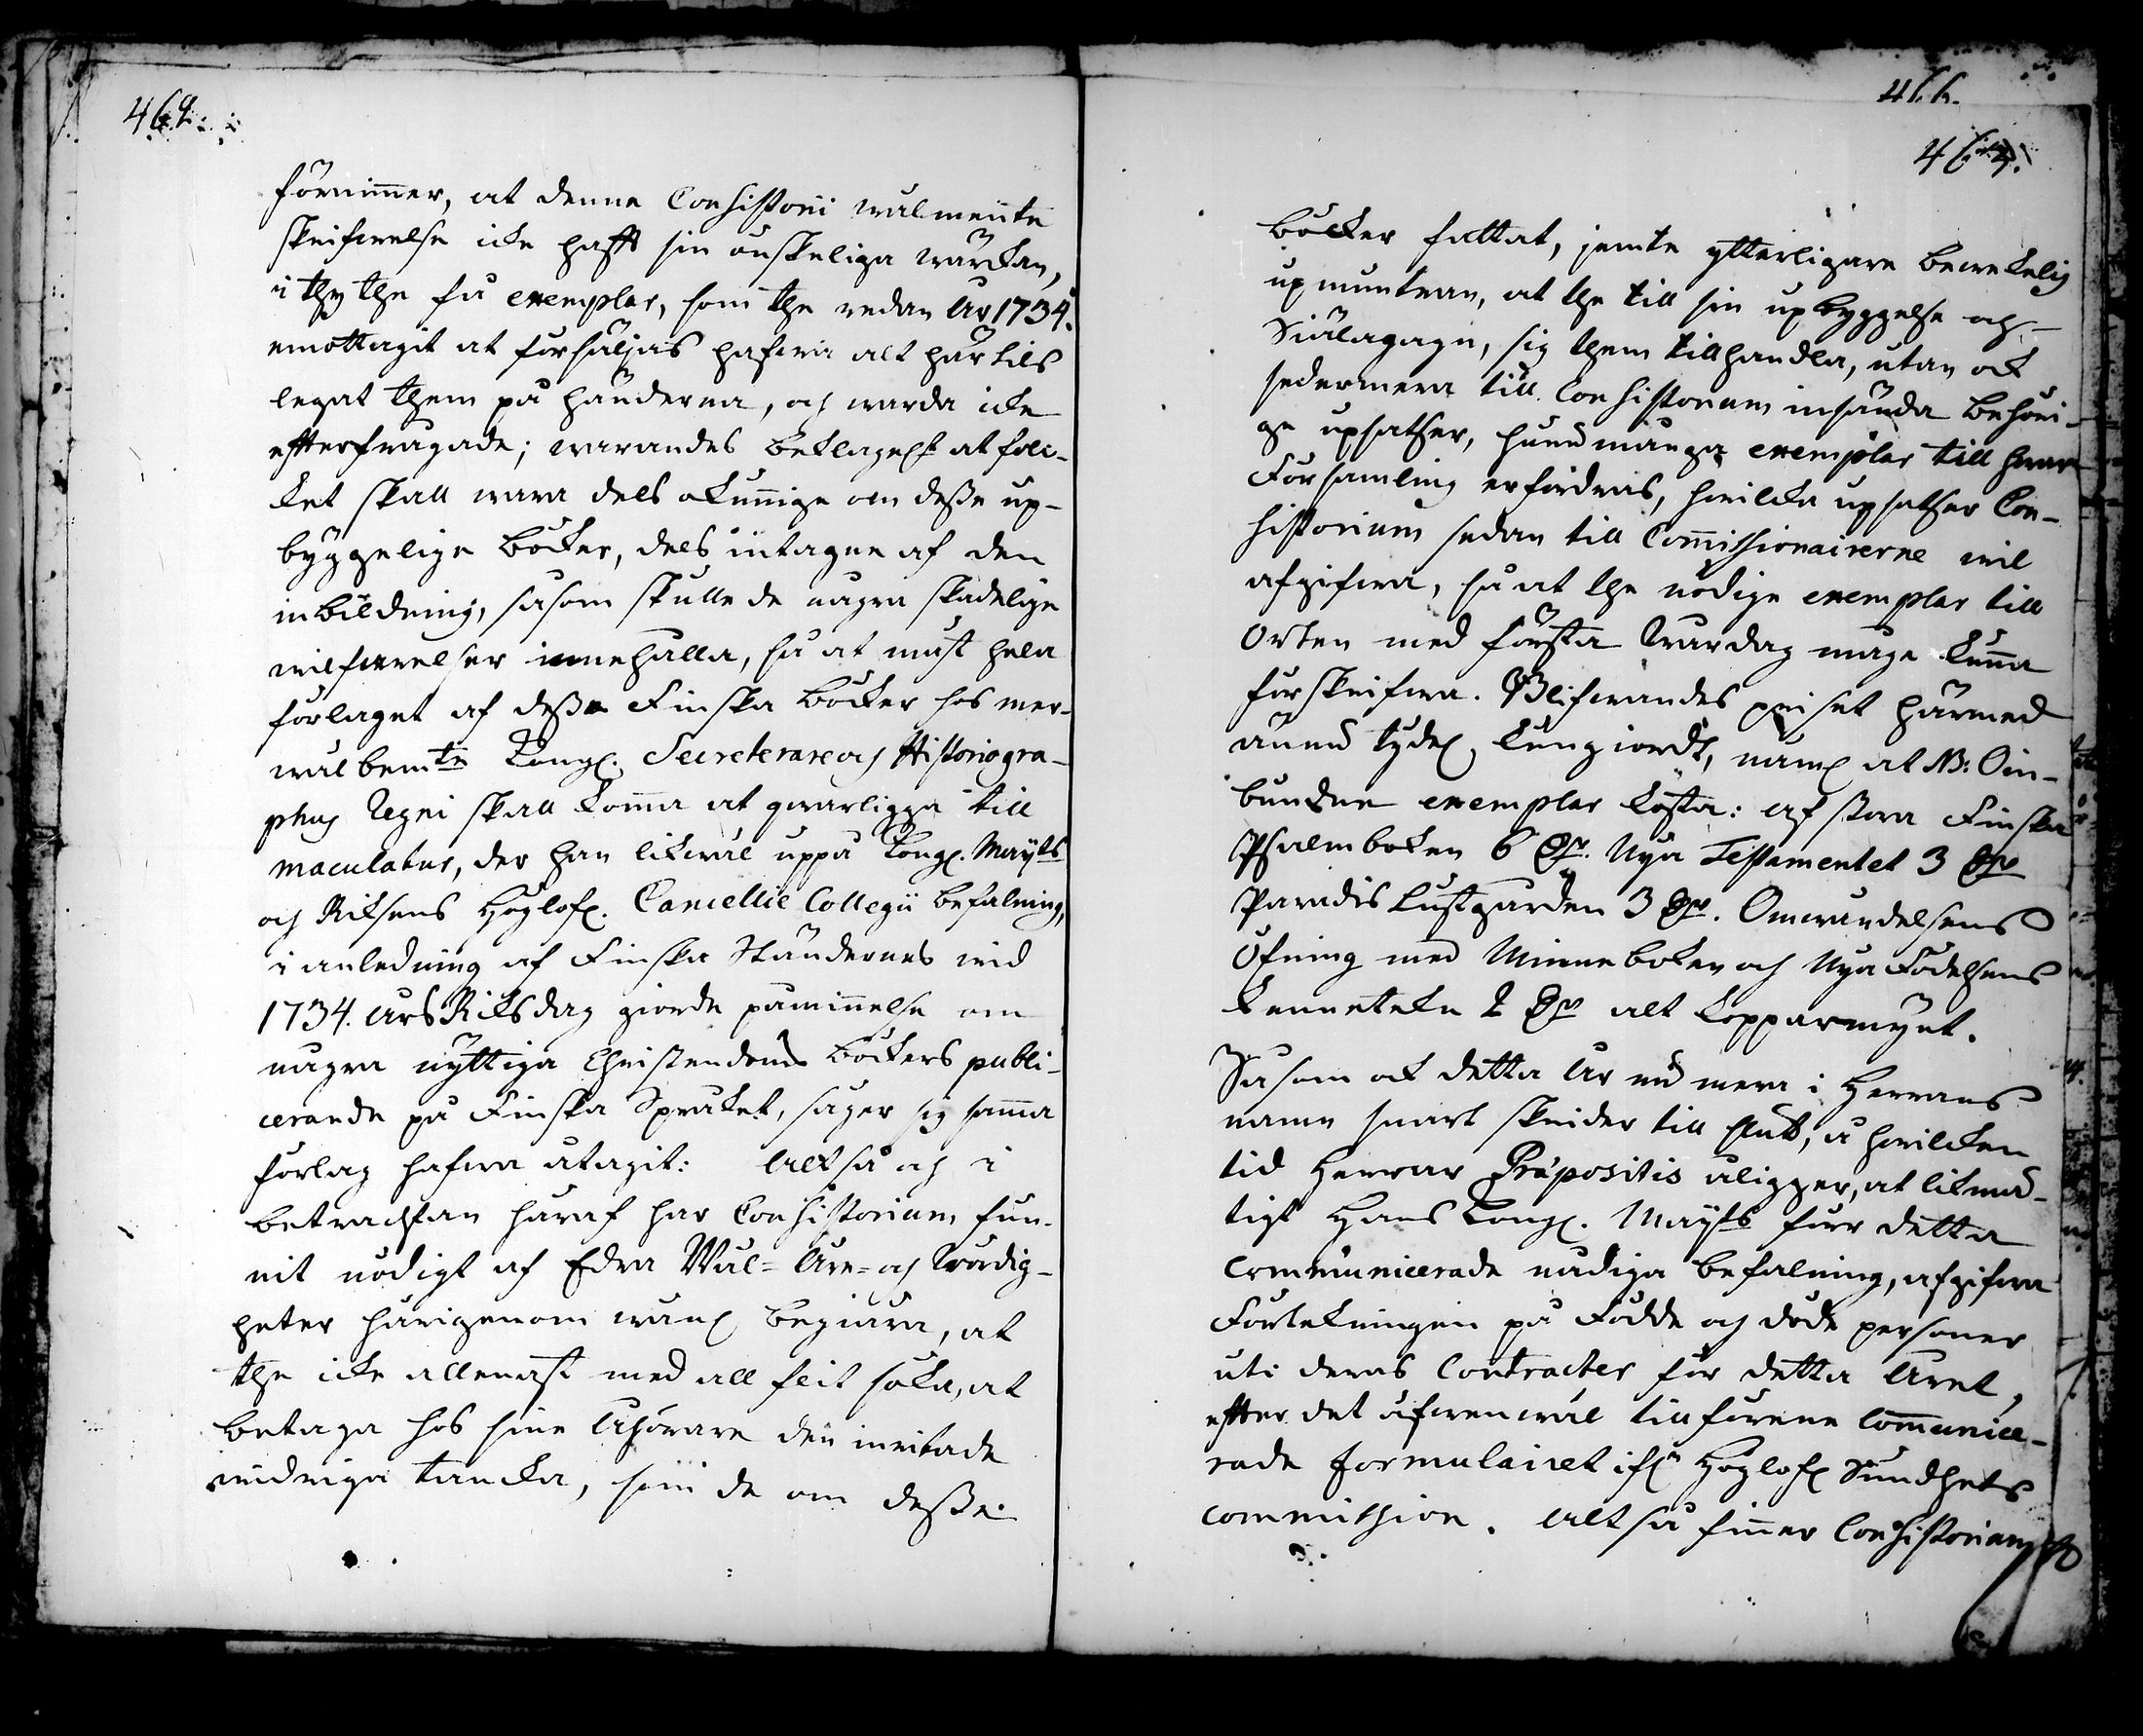 464.
förnimmer, at denne Consistorii wälmente
skrifwelse icke hafft sin önskeliga wärckan,
i thy the få exemplar, som the redan År 1734.
emottagit at försäljas hafwa alt här tils
legat them på händerna, och warda icke
efterfrågade; warandes beklageligt at fol-
ket skall wara dels okunnige om desse up-
byggelige böcker, dels intagne af den
inbildning, såsom skulle de några skadelige
wilfarelser innehålla, så at mäst hela
förlaget af dessa Finska böcker hos mer-
wälbemte Kongl. Secreterare och Historiogra-
phus Regni skall komma at qwarligga till
maculatur, der han likwäl uppå Kongl. Mayts
och Riksens Höglofl. Cancellie Collegii befalning,
i anledning af Finska Ständernes wid
1734. Års Riksdag giorde påminnelse om
några nyttiga Christendoms böckers publi-
cerande på Finska Språket, säger sig samma
förlag hafwa åtagit: Altså och i
betrachtan häraf har Consistorium fun-
nit nödigt af Edra Wäl= Äre= och Wördig-
heter härigenom wänl. begiära, at
the icke allenast med all flit söka, at
betaga hos sine Åhörare den inritade
widriga tancka, som de om desse
466.
böcker fattat, jemte ytterligare bewekelig
upmuntran, at the till sin upbyggelse och
Siälagagn, sig them tillhandla, utan ock
sedermera till Consistorium insända behöri-
ge upsatser, huru många exemplar till hwar
Församling erfordras, hwilcka upsatser Con-
sistorium sedan till Commissionairerne wil
afgifwa, så at the nödige exemplar till
Orten med första Wardag måge kunna
förskrifwa. Blifwandes priset härmed
ännu tydel. kungiordt, näml. at NB: Oin-
bundne exemplar kosta: af stora Finska
Psalmboken 6 Dr. Nya Testamentet 3 Dr
Paradis Lustgården 3 Dr. Omwändelsens
Öfning med Minneboken och Nya Födelsens
Kenneteckn 2 Dr alt Koppar mynt.
Såsom ock detta År nu mera i Herrans
namn snart skrider till slut, å hwilcken
tid Herrar Præpositis åligger, at likmä-
tigt Hans Kongl. Mayts förr detta
communicerade nådiga befalning, afgifwa
Förtekningen på Födde och döde personer
uti deras Contracter för detta Året,
efter det äfwenwäl tillförene communice-
rade formulairet ifrån Höglofl Sundhets
commission. Altså finner Consistorium